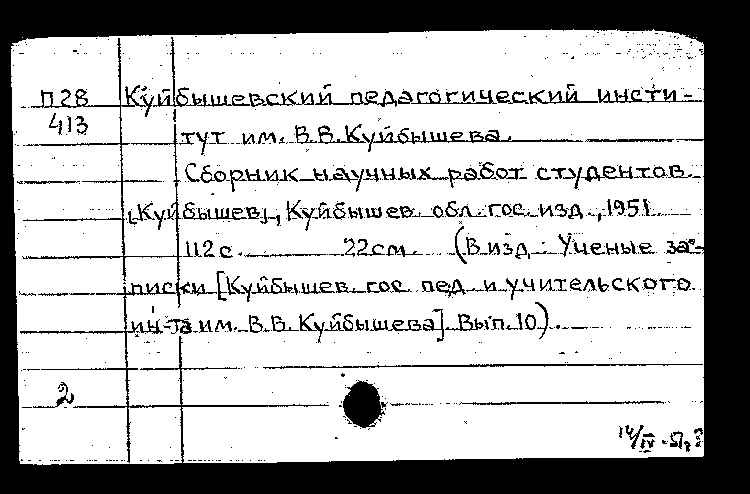 П28 Куйбышевский педагогический инсти-
413 тут им. В.В. Куйбышева.
Сборник научных работ студентов.
[Куйбышев], Куйбышев. обл. гос. изд., 1951
112 с. 22 см. (В изд.: Ученые за-
писки [Куйбышев. гос. пед. и учительского
ин-та им. В.В. Куйбышева]. Вып. 10).
2
14/IV-51